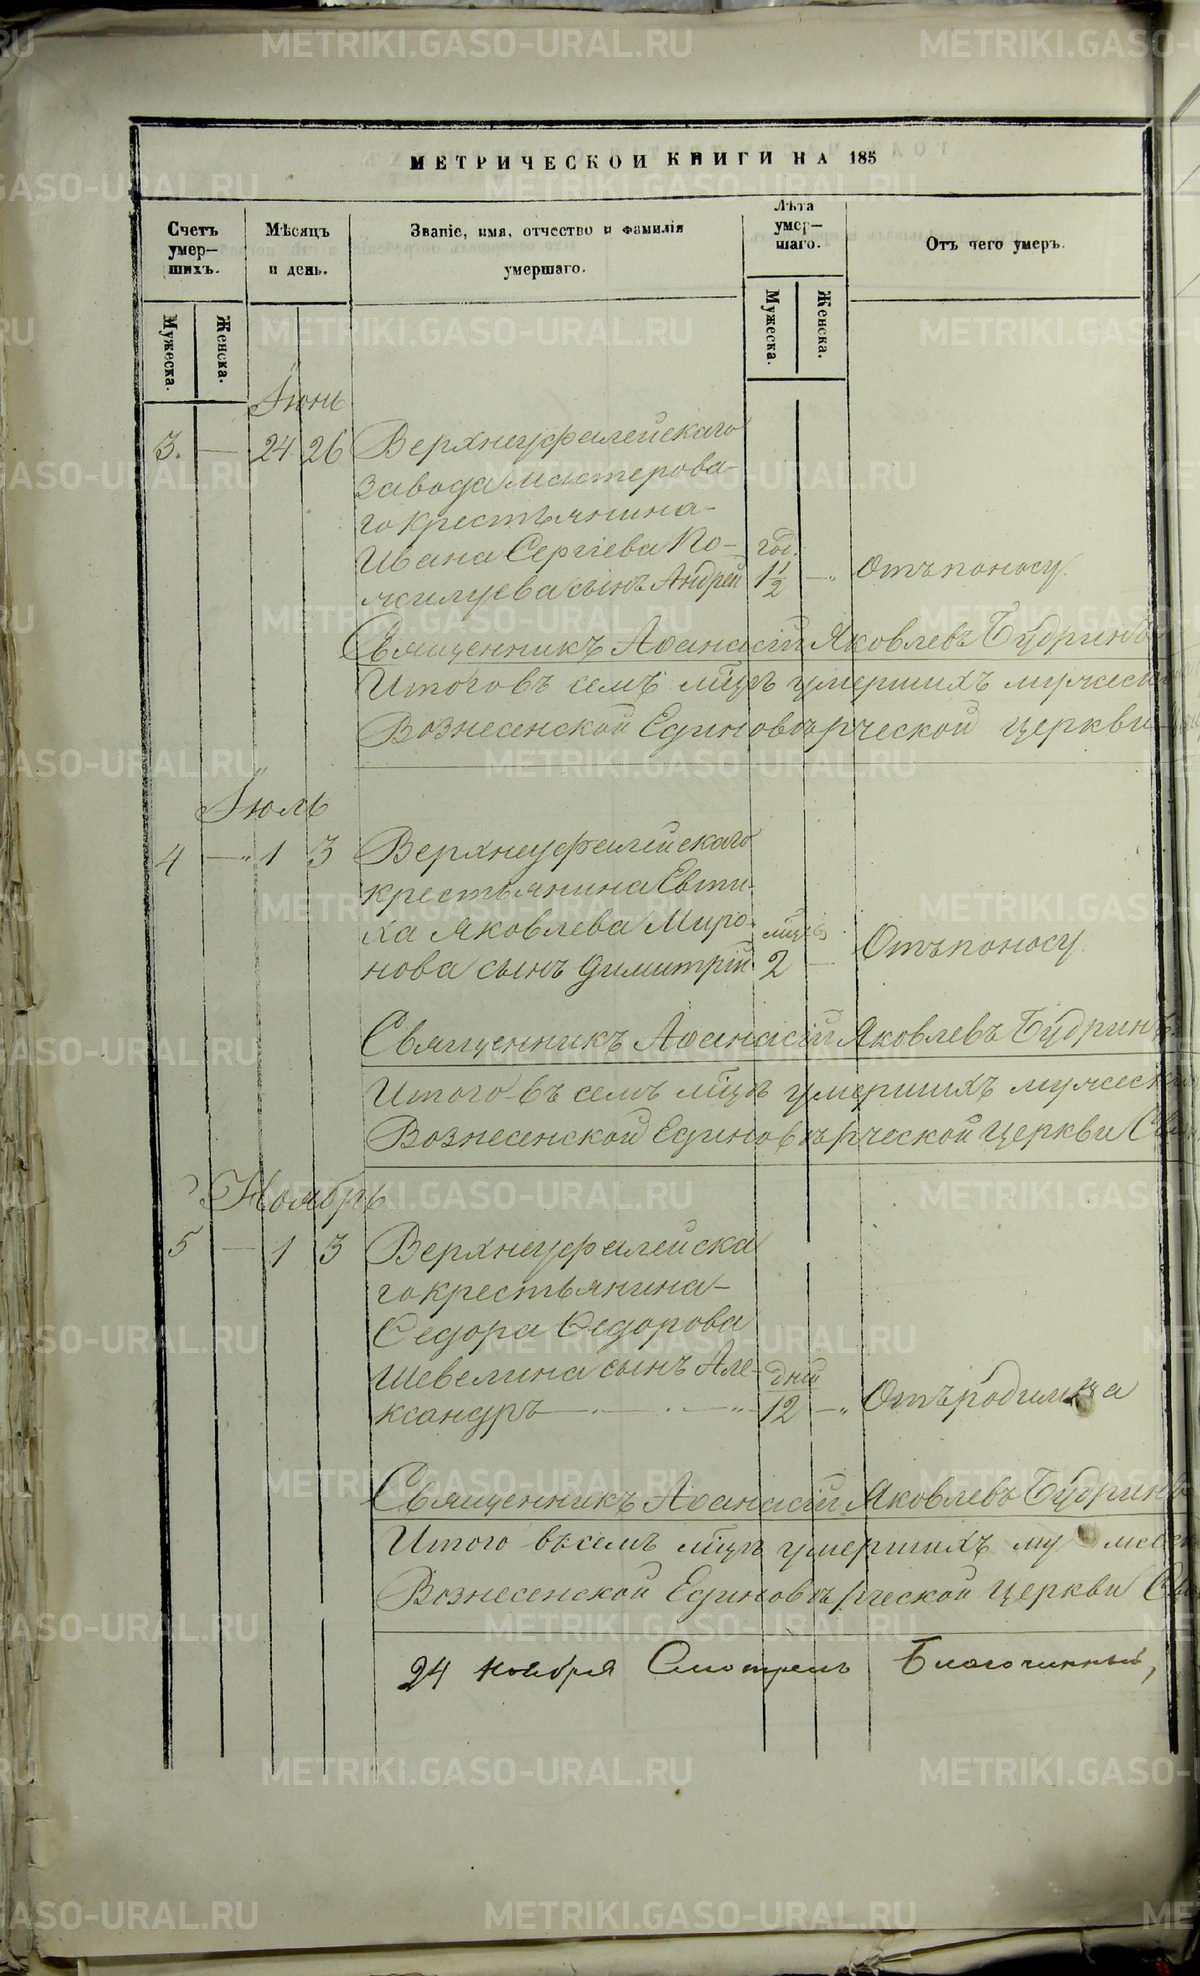 МЕТРИЧЕСКОЙ КНИГИ НА 185
Счетъ умер— шихъ.
Мѣсяцъ и день.
Званіе, имя, отчество и фамилія умершаго.
Лѣта умер— шаго.
Отъ чего умеръ.
Мужеска.
Женска.
Мужеска.
Женска.
Іюнь
3. — 24 26 Верхнеуфалейскаго
завода мастерова-
го крестьянина
Ивана Сергіева По- год.
жилуева сынъ Андрей 1 1/2 — Отъ поносу.
Священникъ Аѳанасій Яковлевъ Будринъ
Итого въ семъ м͠цѣ умершихъ мужеск
Вознесенской Единовѣрческой церкви
Іюль
4 — 1 3 Верхнеуфалейскаго
крестьянина Евти-
ха Яковлева Миро-
нова сынъ Димитрій 2 — Отъ поносу.
Священникъ Аѳанасій Яковлевъ Будринъ
Итого въ семъ м͠цѣ умершихъ мужеск
Вознесенской Единовѣрческой церкви Свя
Ноябрь
5 — 1 3 Верхнеуфалейска
го крестьянина
Ѳедора Ѳедорова
Шевелина сынъ Але- дній
ксандръ 12 — Отъ родимца
Священникъ Аѳанасій Яковлевъ Будринъ
Итого въ семъ м͠цѣ умершихъ му жеск
Вознесенской Единовѣрческой церкви Свя
24 ноября Смотрелъ Благочинный,
METRIKI.GASO-URAL.RU